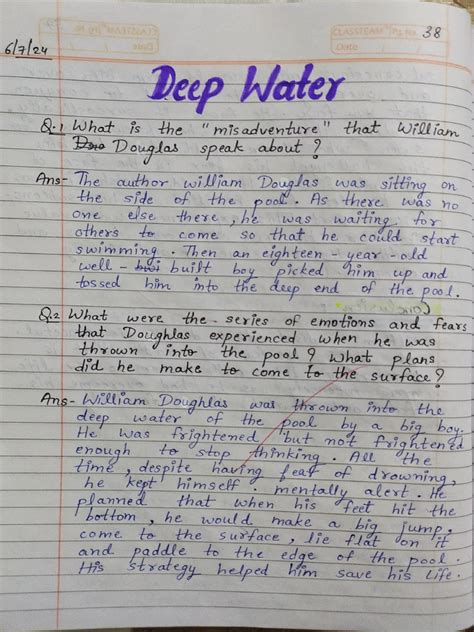 CLASSTEAM Pg. No. 38
Date
6/7/24
Deep Water
Q.1 What is the "misadventure" that William
Douglas speak about ?
Ans- The author william Douglas was sitting on
the side of the pool. As there was no
one else there, he was waiting for
others to come so that he could start
swimming. Then an eighteen-year-old
well- built boy picked him up and
tossed him into the deep end of the pool.
Q.2 What were the series of emotions and fears
that Doughlas experienced when he was
thrown into the pool? What plans
did he make to come to the surface?
Ans- William Doughlas was thrown into the
deep water of the pool by a big boy.
He was frightened but not frightened
enough to stop thinking. All the
time, despite having fear of drowning,
he kept himself mentally alert. He
planned that when his feet hit the
bottom, he would make a big jump,
come to the surface, lie flat on it
and paddle to the edge of the pool.
His strategy helped him save his life.